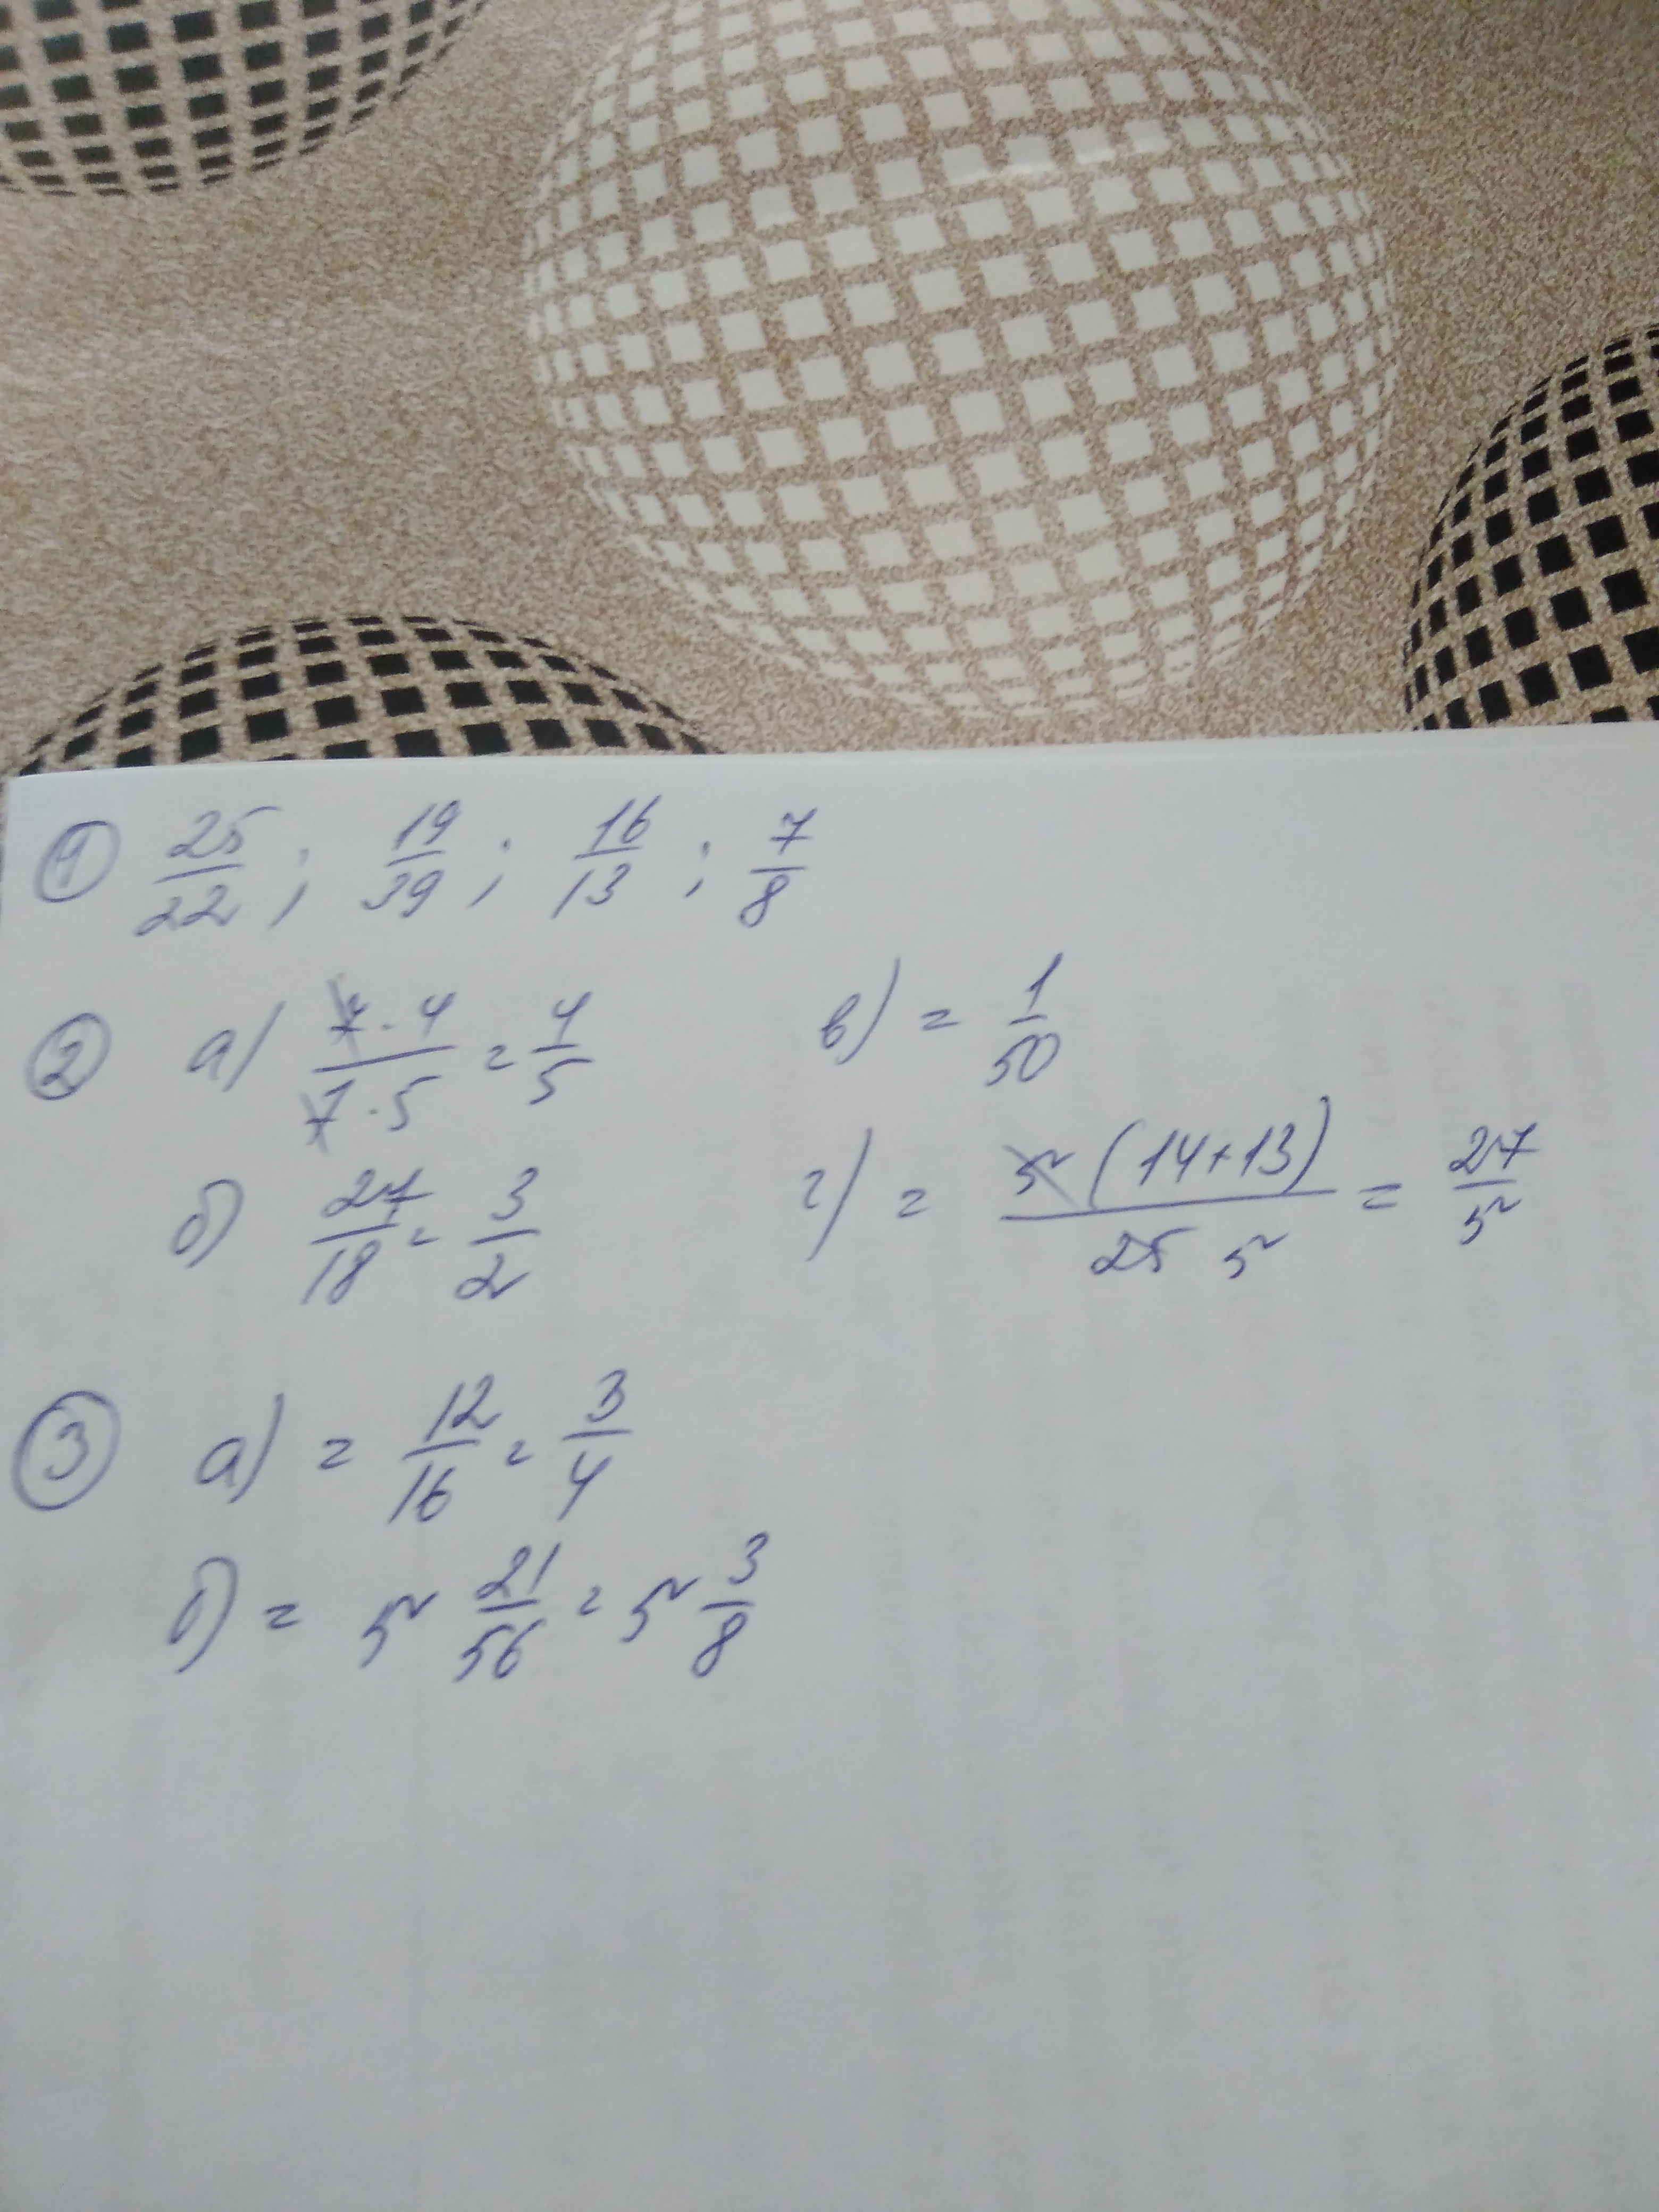 ① 25/22 ; 19/39 ; 16/13 ; 7/8
② а) 7·4/7·5 = 4/5
б) 27/18 = 3/2
в) = 1/50
г) = 5(14+13)/25 5 = 27/5
③ а) = 12/16 = 3/4
б) = 5 21/56 = 5 3/8